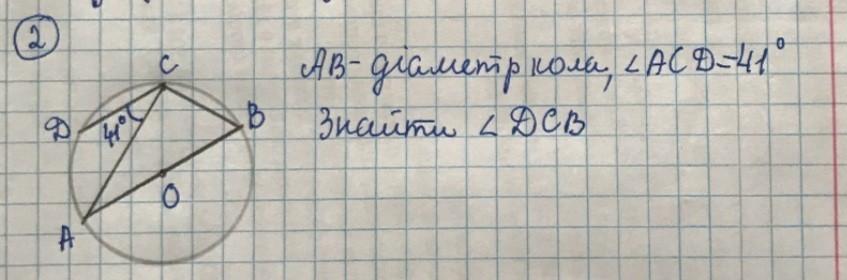 2
C
AB - діаметр кола, ∠ACD=41°
D 41° B
Знайти ∠DCB
O
A